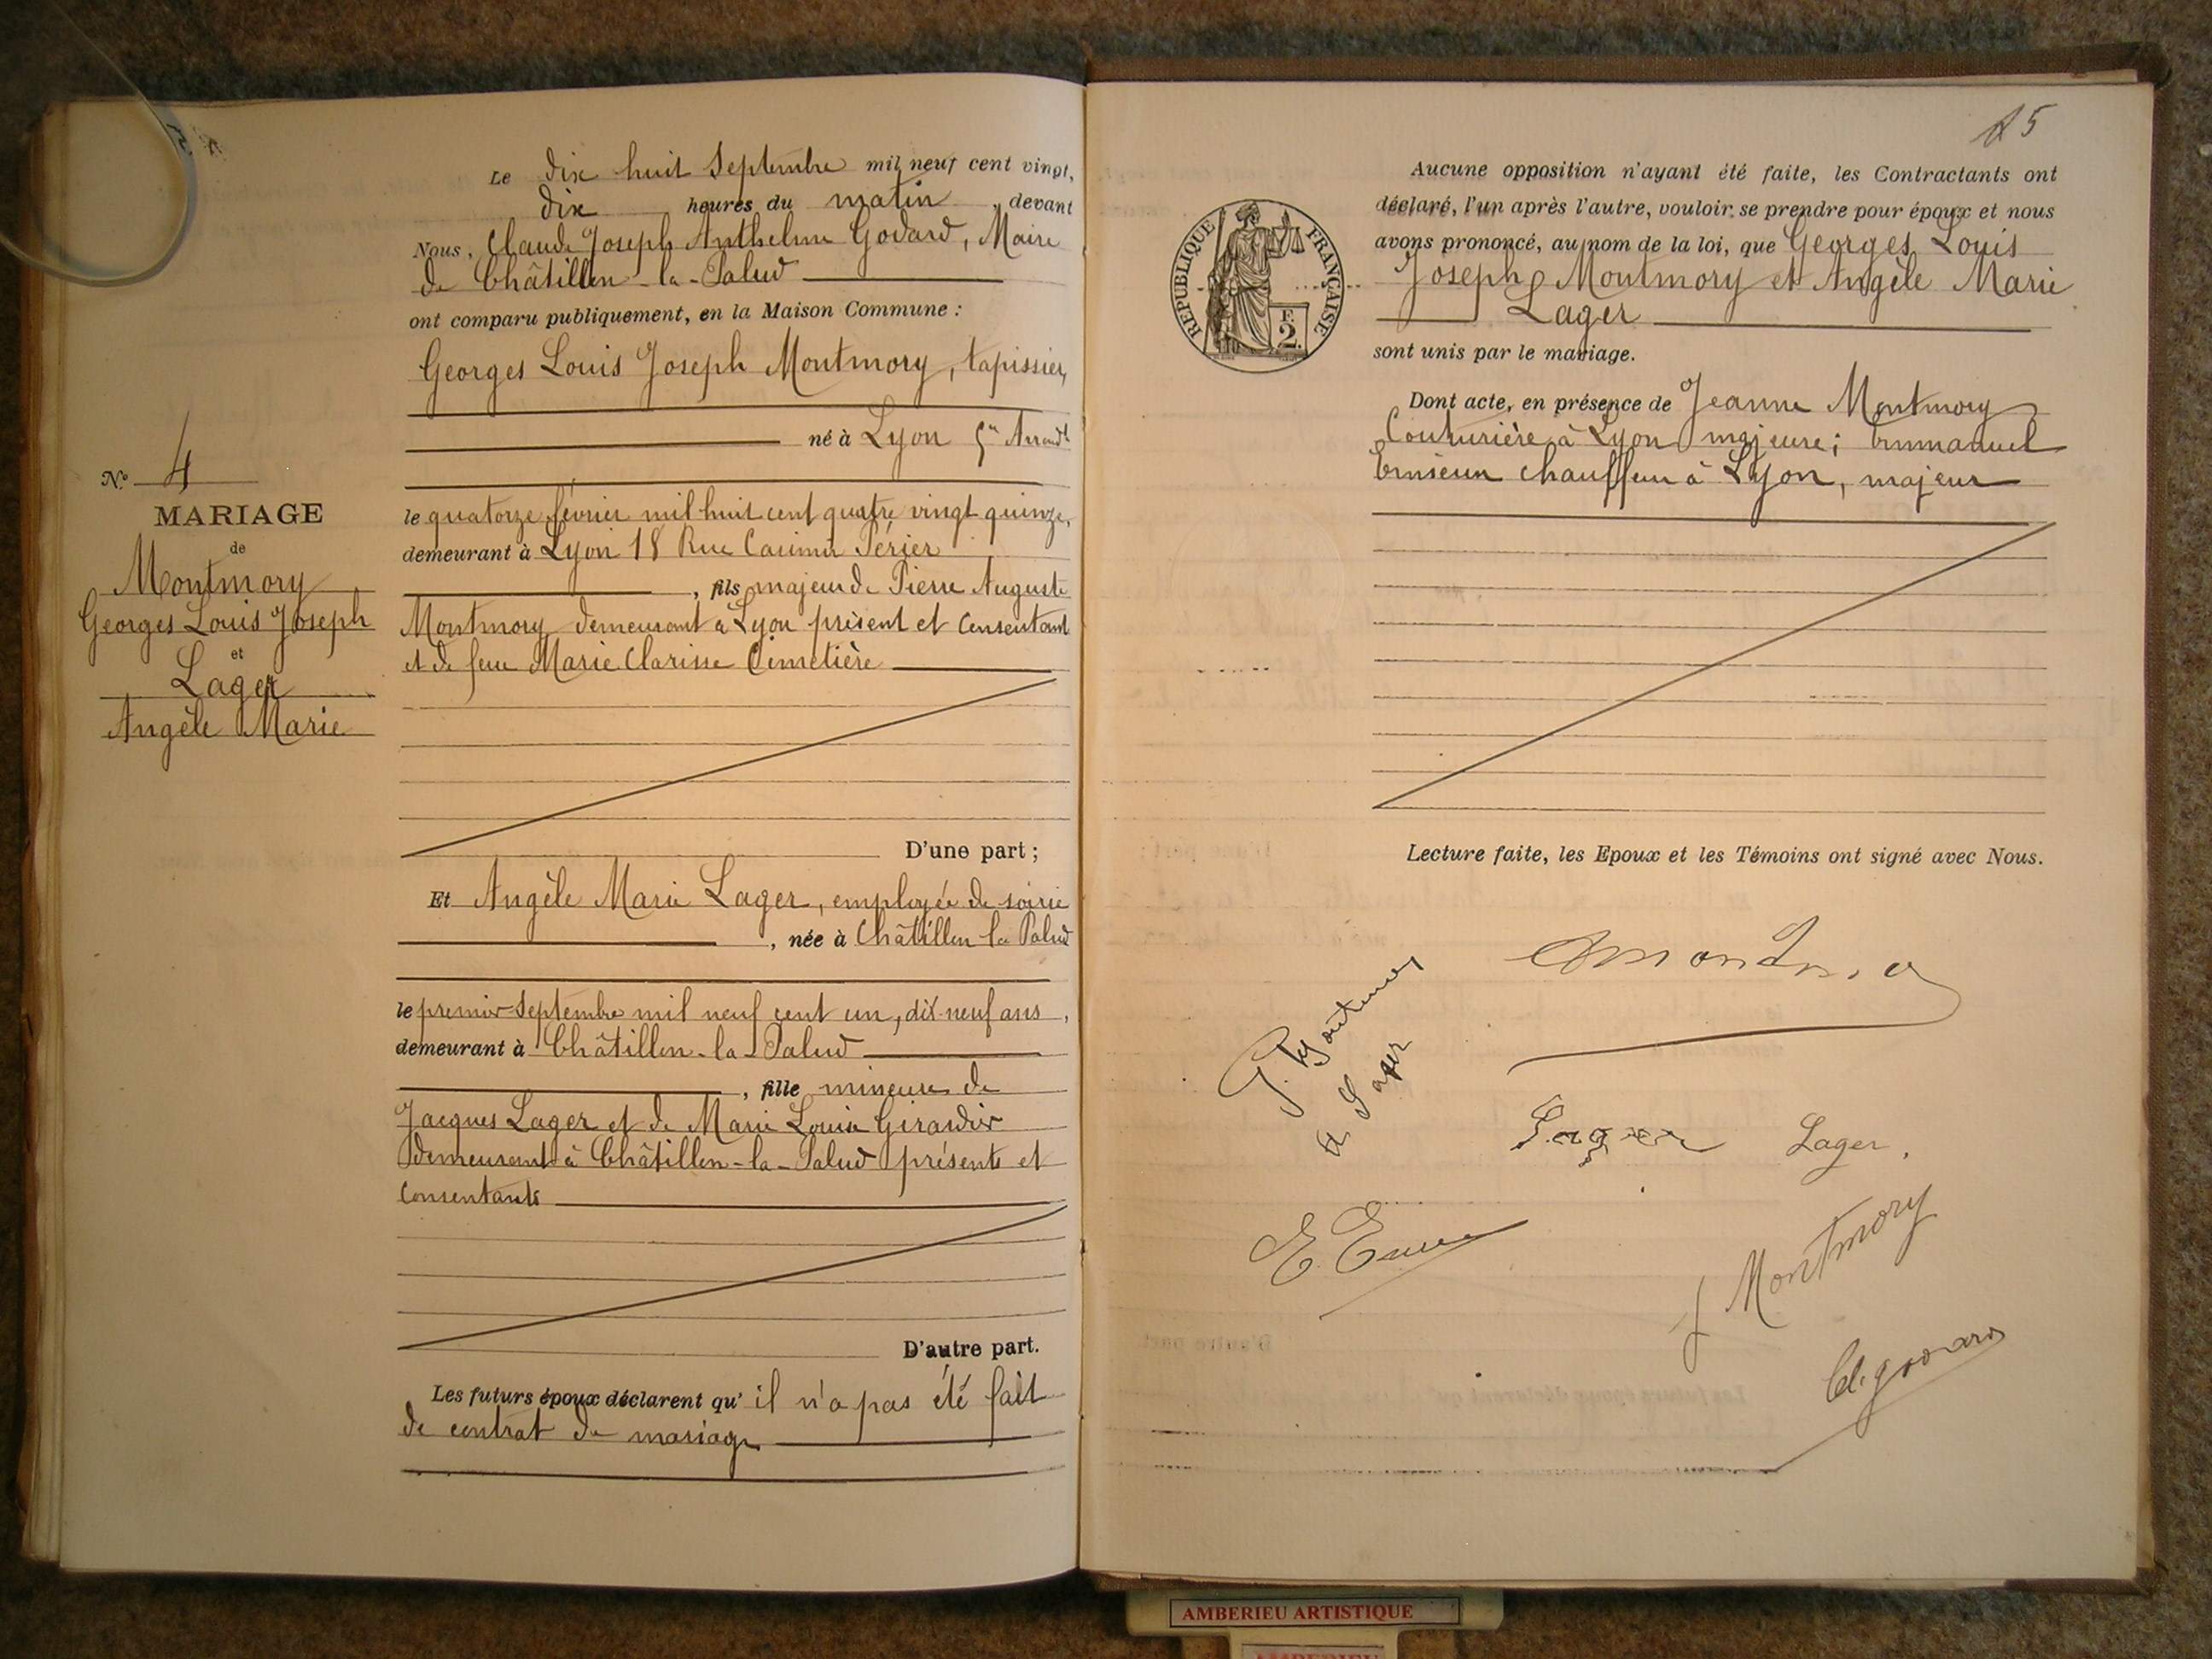 Le dix huit Septembre mil neuf cent vingt,
dix heures du matin, devant
Nous, Claude Joseph Anthelme Godard, Maire
de Châtillon-la-Palud
ont comparu publiquement, en la Maison Commune :
Georges Louis Joseph Montmory, tapissier,
né à Lyon
le quatorze février mil huit cent quatre vingt quinze,
demeurant à Lyon 18 Rue Casimir Périer
, fils majeur de Pierre Auguste
Montmory demeurant à Lyon présent et consentant
et de feue Marie Clarisse Cimetière
D'une part ;
N.° 4
MARIAGE
de
Montmory
Georges Louis Joseph
et
Lager
Angèle Marie
Et Angèle Marie Lager, employée de soirie
, née à Châtillon la Palud
le premier Septembre mil neuf cent un, dix-neuf ans,
demeurant à Châtillon-la-Palud
, fille mineure de
Jacques Lager et de Marie Louise Girardin
demeurant à Châtillon-la-Palud présents et
consentants
D'autre part.
Les futurs époux déclarent qu'il n'a pas été fait
de contrat de mariage
15
Aucune opposition n'ayant été faite, les Contractants ont
déclaré, l'un après l'autre, vouloir se prendre pour époux et nous
avons prononcé, au nom de la loi, que Georges Louis
Joseph Montmory et Angèle Marie
Lager
sont unis par le mariage.
RÉPUBLIQUE FRANÇAISE
F.
2.
Dont acte, en présence de Jeanne Montmory
Couturière à Lyon majeure ; Emmanuel
chauffeur à Lyon, majeur
Lecture faite, les Epoux et les Témoins ont signé avec Nous.
G. Montmory
A Lager
Lager Lager.
J Montmory
Cl. Godard
AMBERIEU ARTISTIQUE
AMBERIEU